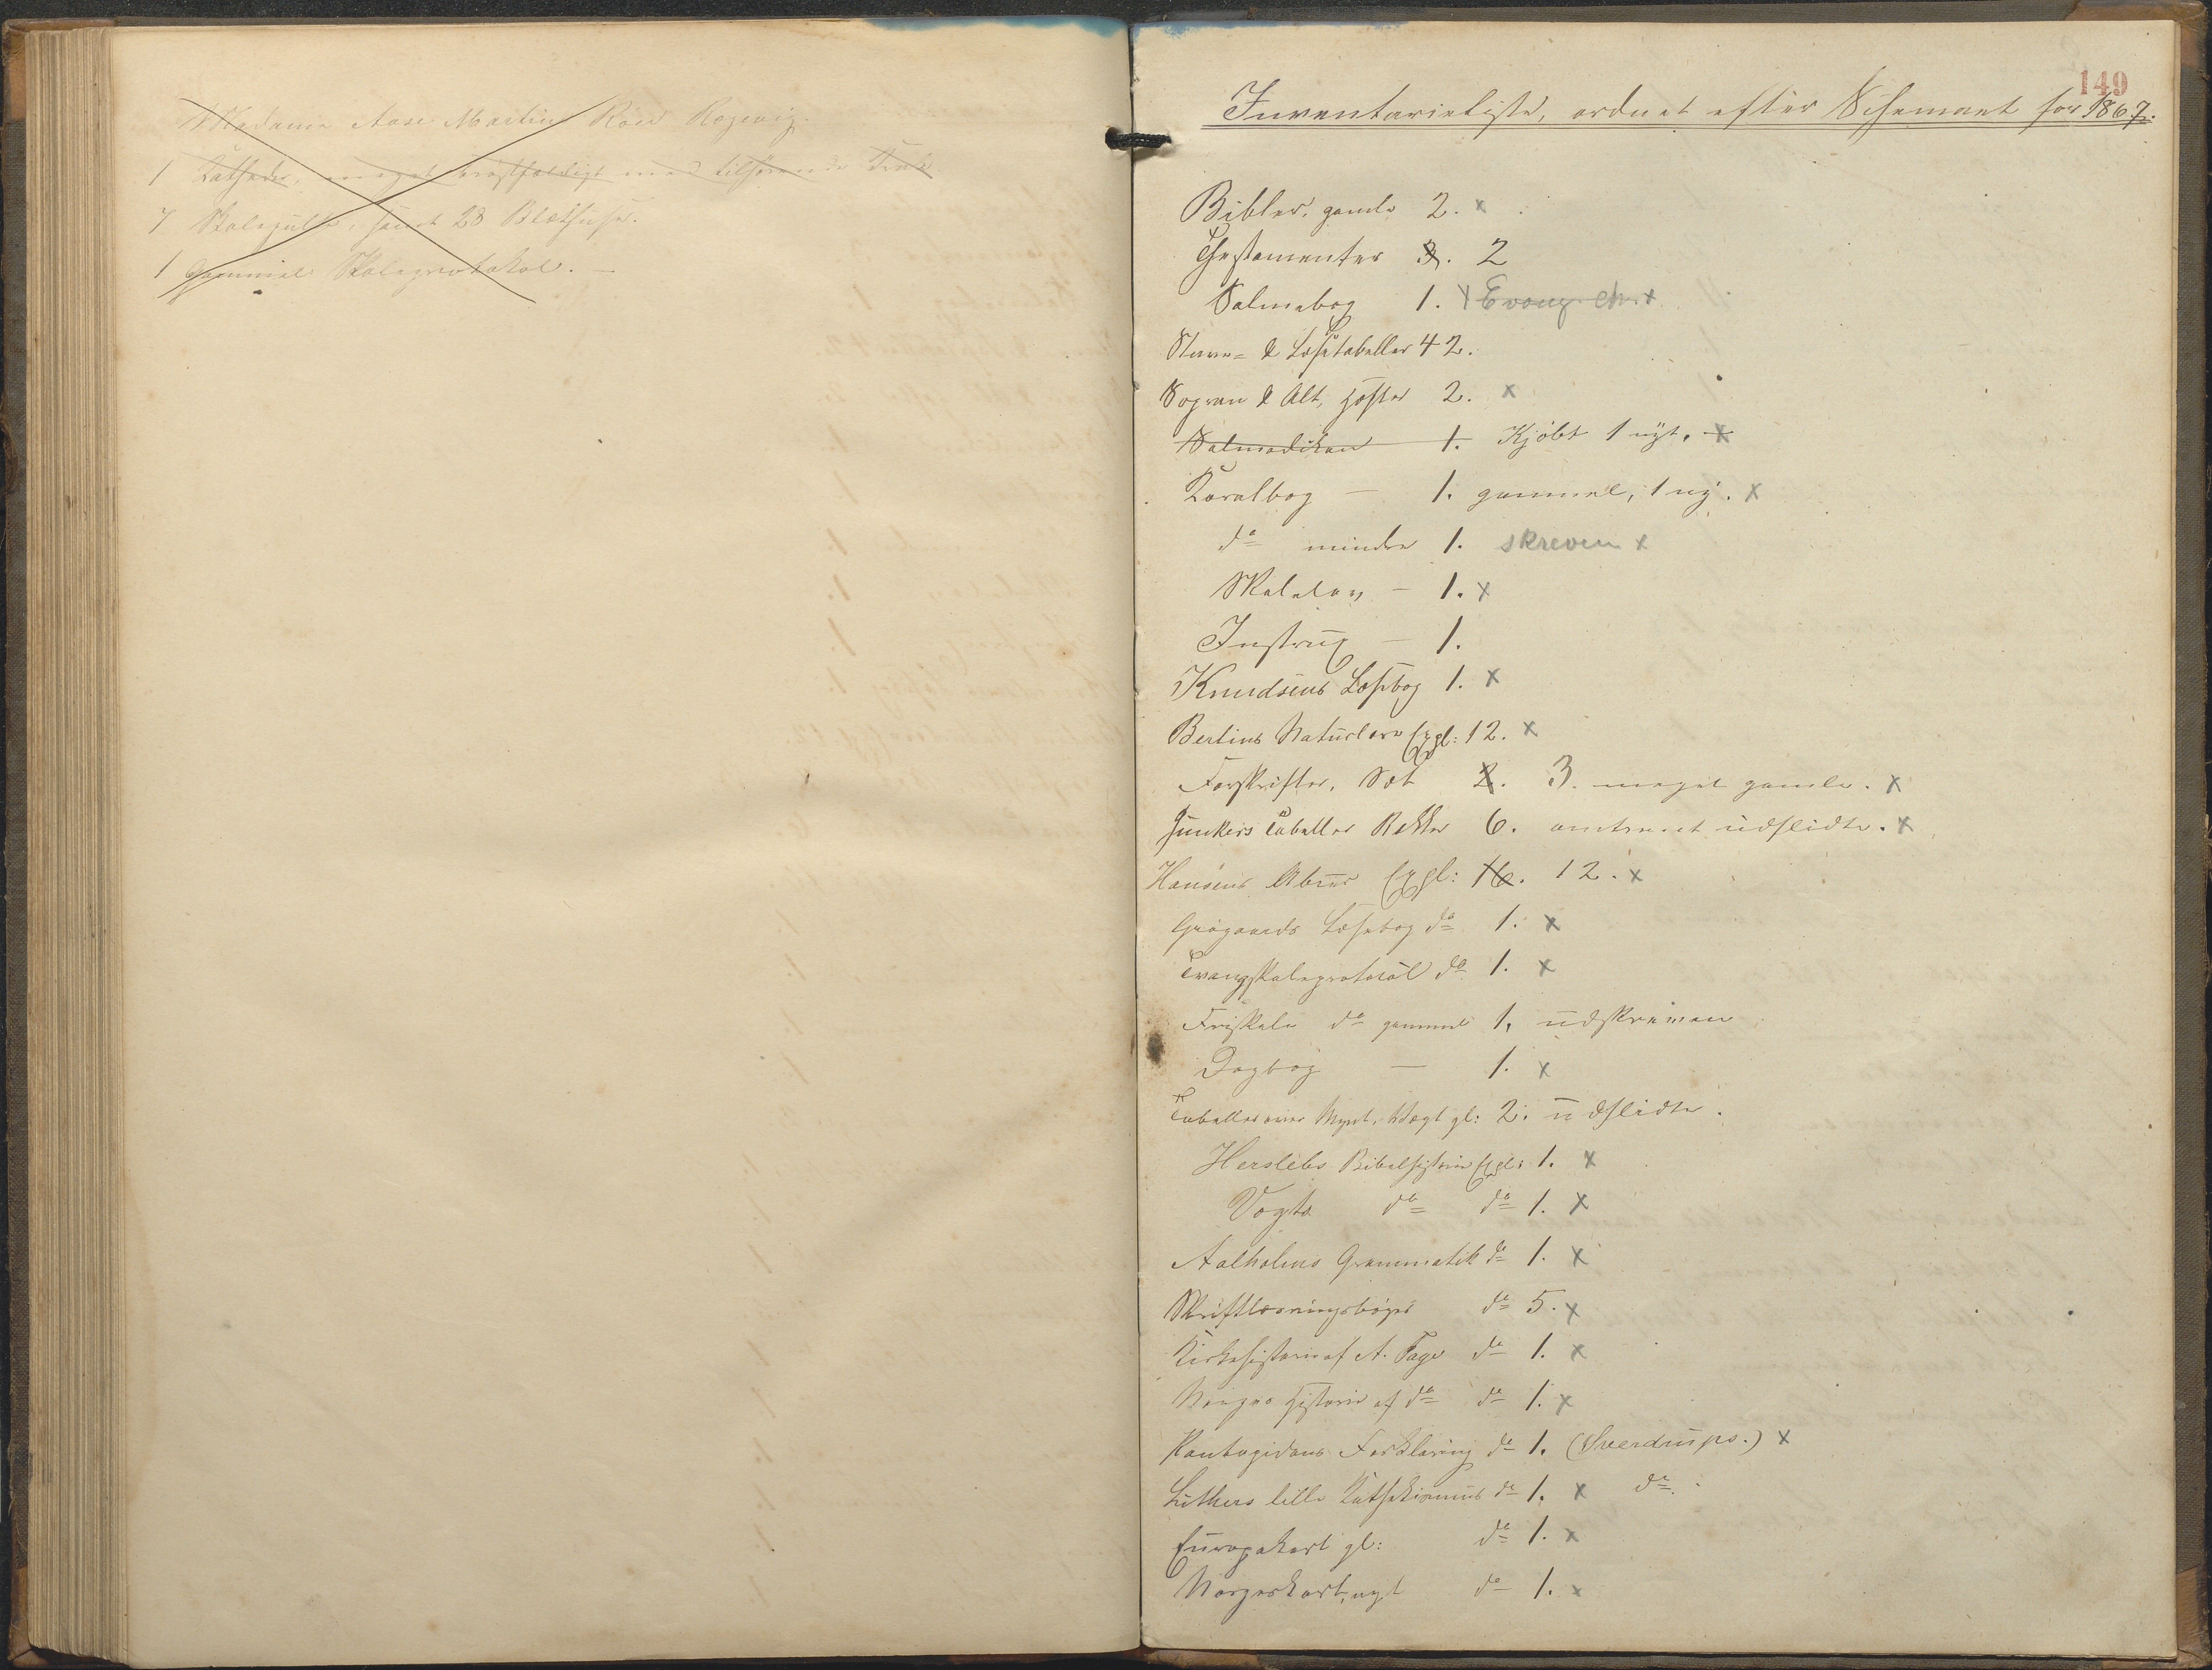 Madame Aase Martine Röed Rægevig.
1 Katheder, meget bröstfældigt med tilhørende Kruk
7 Skolepulte, samt 28 Blækhuse.
1 Gammel Skoleprotokol. —
149
Inventarieliste, ordnet efter Schemaet for 1867.
Bibler, gamle 2. x
Thestamenter 3. 2
Salmebog 1. 1 Evang. Chr. x
Stave- & Læsetabeller 42.
Sopran & Alt, Hefter 2. x
Salmodikon 1. Kjöbt 1 nyt. x
Koralbog — 1. gammel, 1 ny. x
do mindre 1. skreven x
Skolelov — 1. x
Instrux — 1.
Knudsens Læsebog 1. x
Berlins Naturlære Expl: 12. x
Forskrifter, Sæt 2. 3. meget gamle. x
Junkers Tabeller Rækker 6. omtrent udslidte. x
Hansens Abceer Expl: 16. 12. x
Grögaards Læsebog do 1. x
Tvangskoleprotocol do 1. x
Friskole do gammel 1, udskreven
Dagbog — 1. x
Tabeller over Mynt, Vægt gl: 2. udslidte.
Herslebs Bibelhistorie Expl: 1. x
Vogts do do 1. x
Aalholms Grammatik do 1. x
Skriftlæsningsbøger do 5. x
Kirkehistorie af A. Faye do 1. x
Norges Historie af do do 1. x
Pontopidans Forklaring do 1. (Sverdrups.) x
Luthers lille Kathekismus do 1. x do.
Europakart gl: do 1. x
Norgeskart, nyt do 1. x